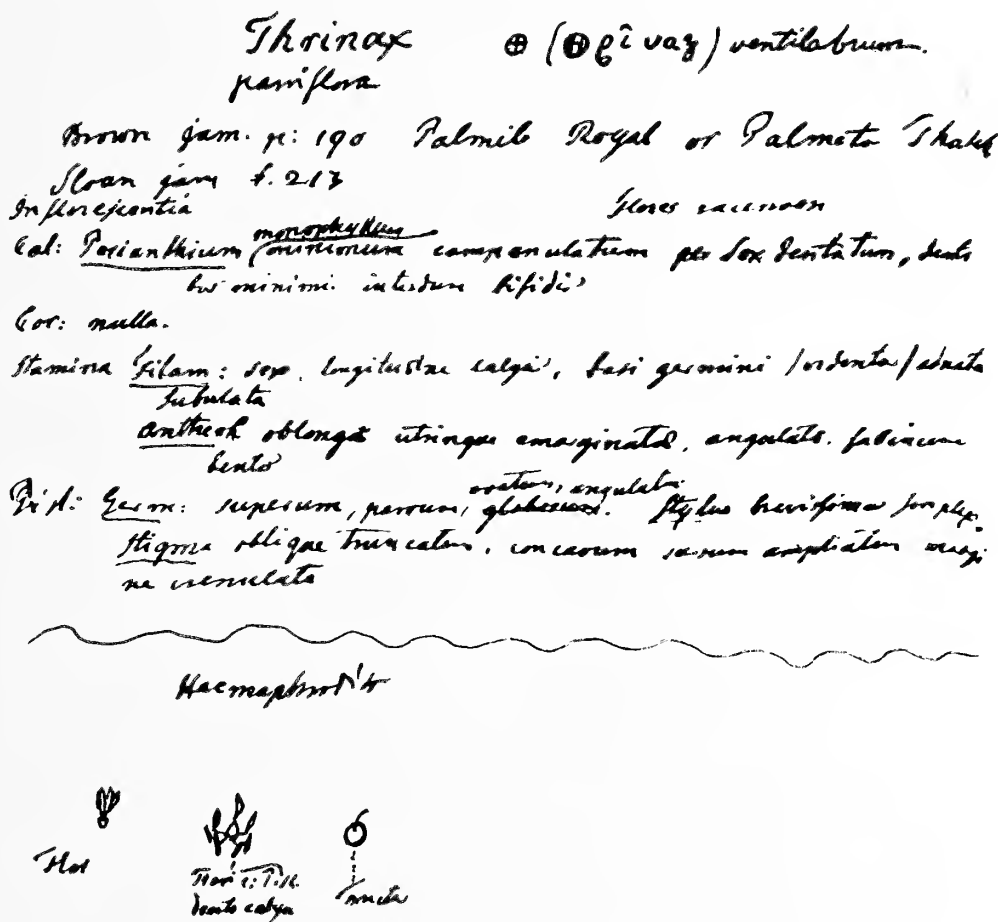 Thrinax ⊕ (Θρῖναξ) ventilabrum.
parviflora
Brown jam. p: 190 Palmito Royal or Palmeto Thatch
Sloan jam t. 213
Inflorescentia flores racemosi
monophyllum
Cal: Perianthium campanulatum per sex dentatum, denti
bus minimi. interdum bifidis
Cor: nulla.
Stamina Filam: sex, longitudine calyci, basi germini adnata
subulata
antherae oblongae utrinque emarginatae, angulato.
ovatum, angulatu
Pist: Germ: superum, parvum, globosum. Stylus brevissimus simplex.
Stigma oblique truncatum, concavum ampliatum margi
ne crenulato
Haemaphrodit
Flos
dento calyx